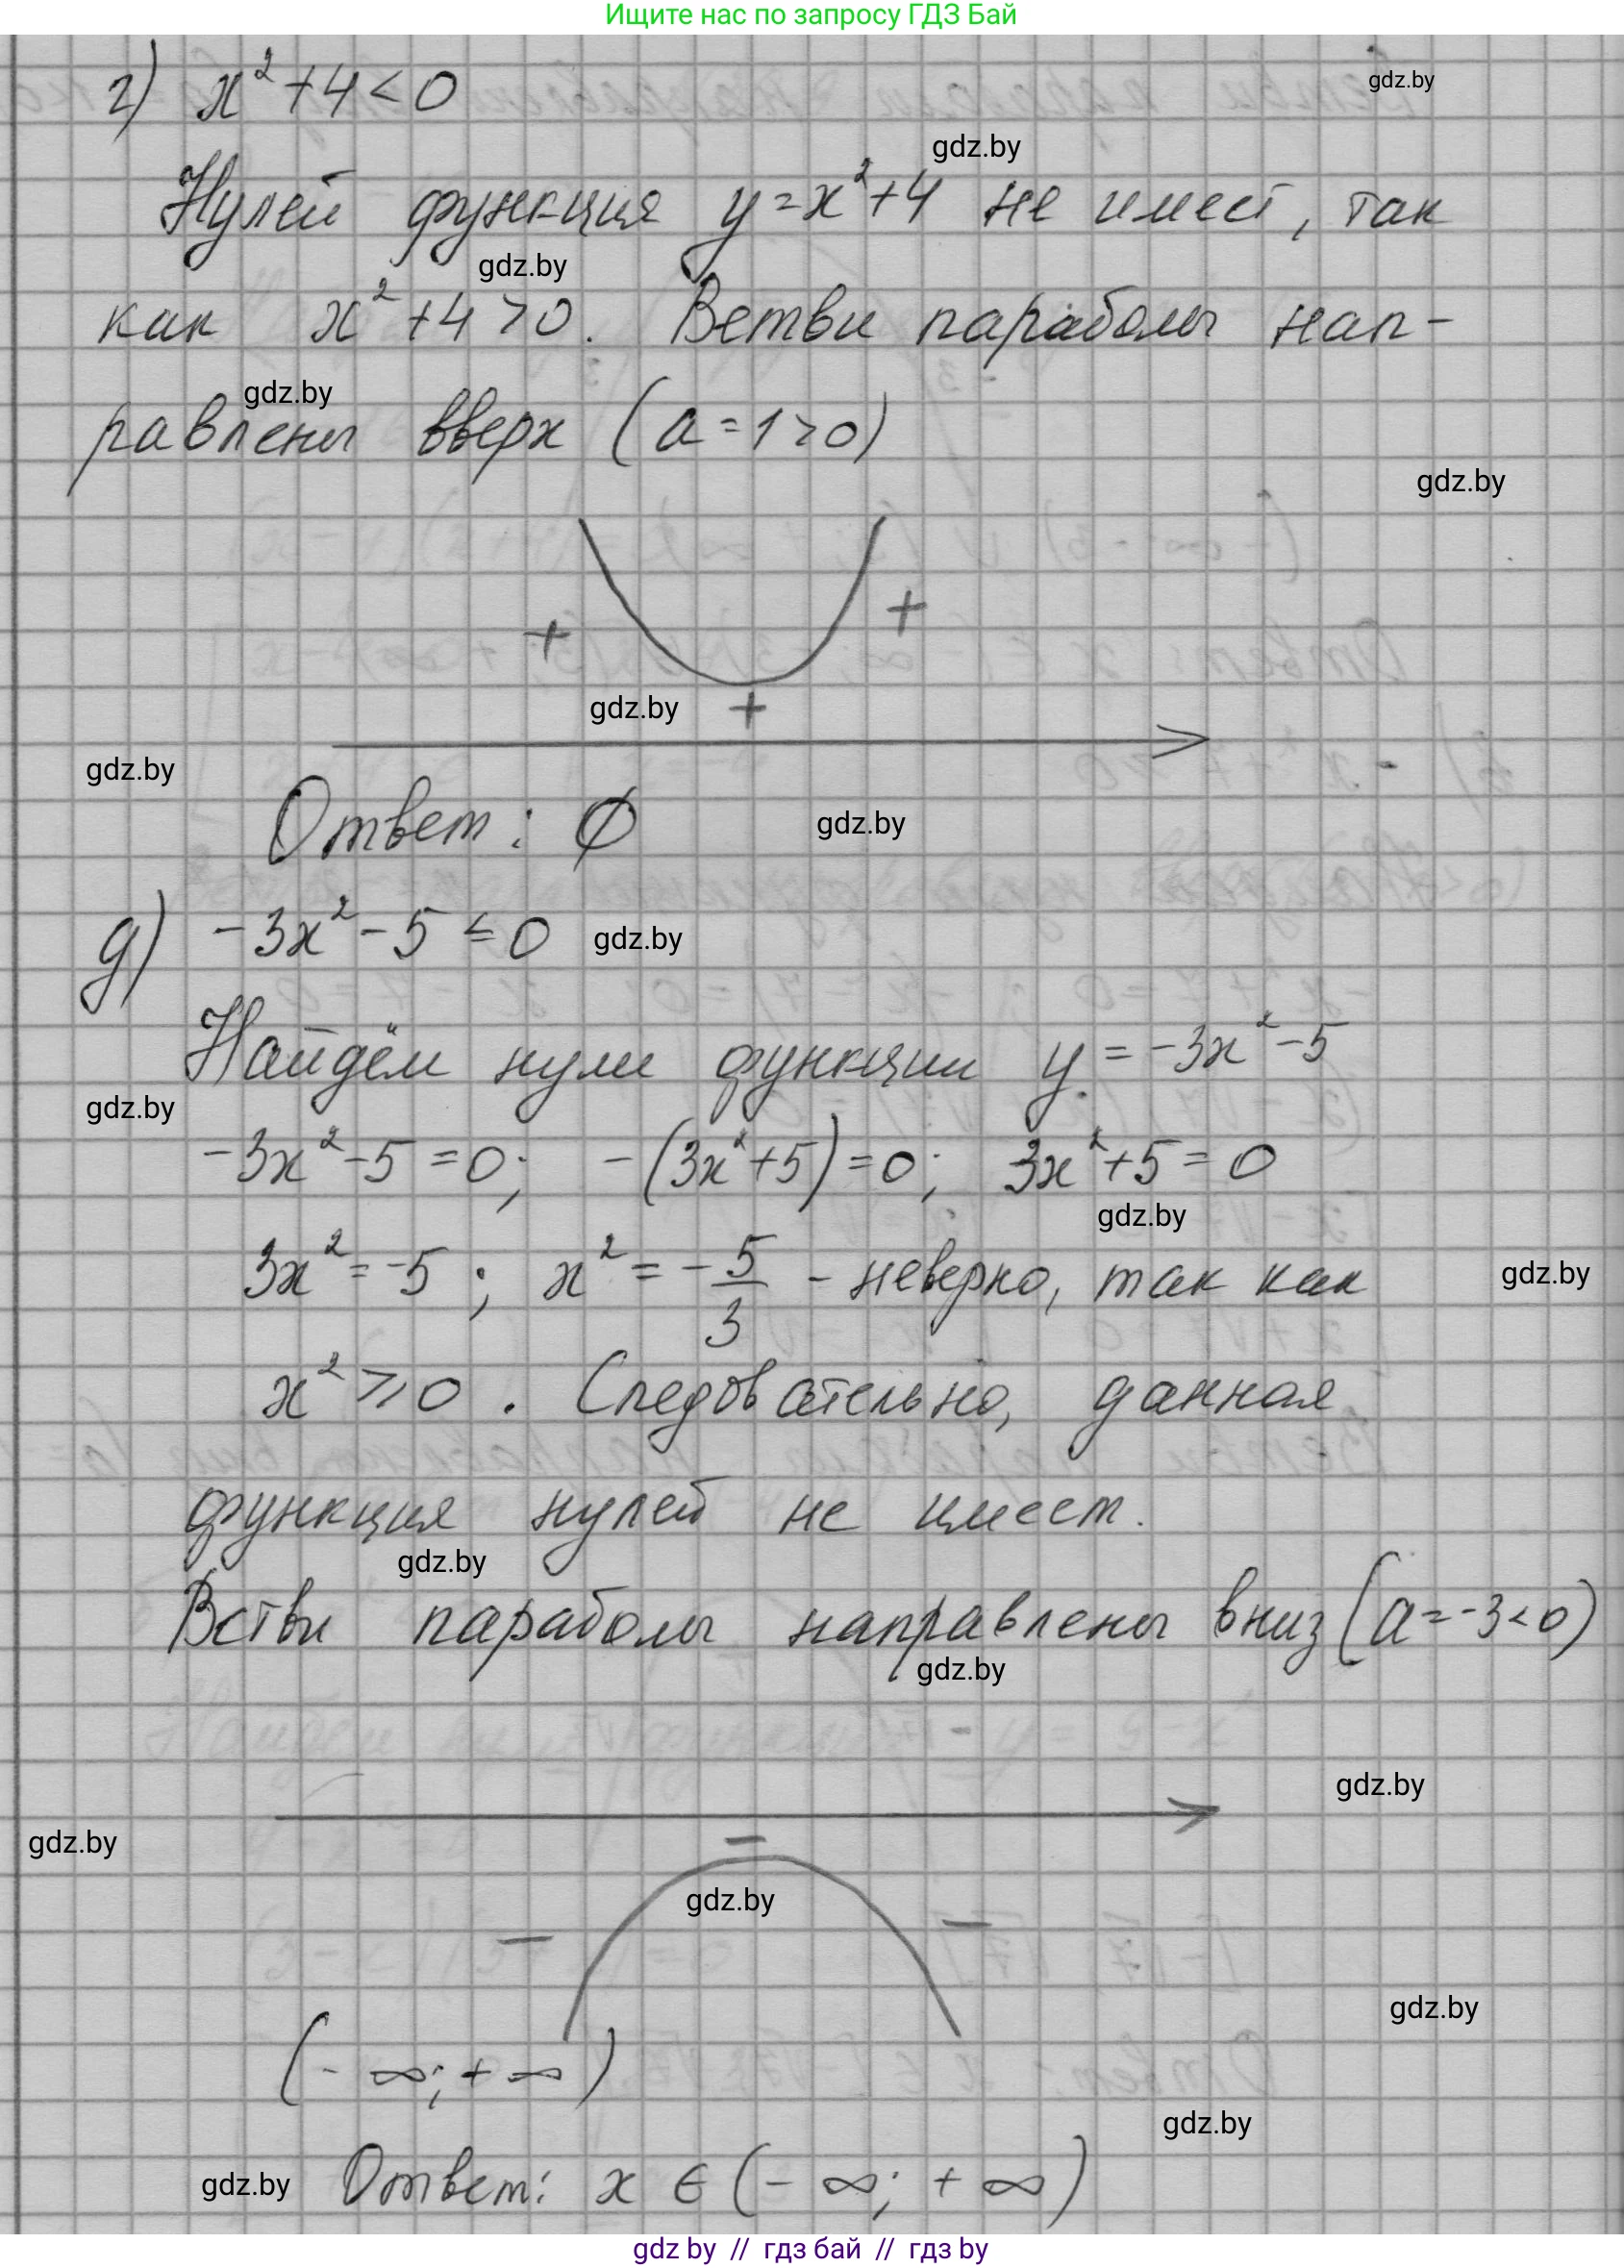 Ищите нас по запросу ГДЗ Бай
г) x²+4<0
gdz.by
gdz.by
Нулей функция y=x²+4 не имеет, так
gdz.by
как x²+4>0. Ветви параболы нап-
gdz.by
равлены вверх (a=1>0)
gdz.by
+ +
gdz.by +
gdz.by
Ответ: ∅ gdz.by
д) -3x²-5≤0 gdz.by
Найдём нули функции y=-3x²-5
gdz.by
-3x²-5=0; -(3x²+5)=0; 3x²+5=0
gdz.by
3x²=-5; x²=-5/3 - неверно, так как gdz.by
x²⩾0. Следовательно, данная
функция нулей не имеет.
gdz.by
Ветви параболы направлены вниз (a=-3<0)
gdz.by
gdz.by
gdz.by
−
gdz.by
− −
gdz.by
(-∞;+∞)
gdz.by
gdz.by Ответ: x∈(-∞;+∞)
gdz by // гдз бай // гдз by